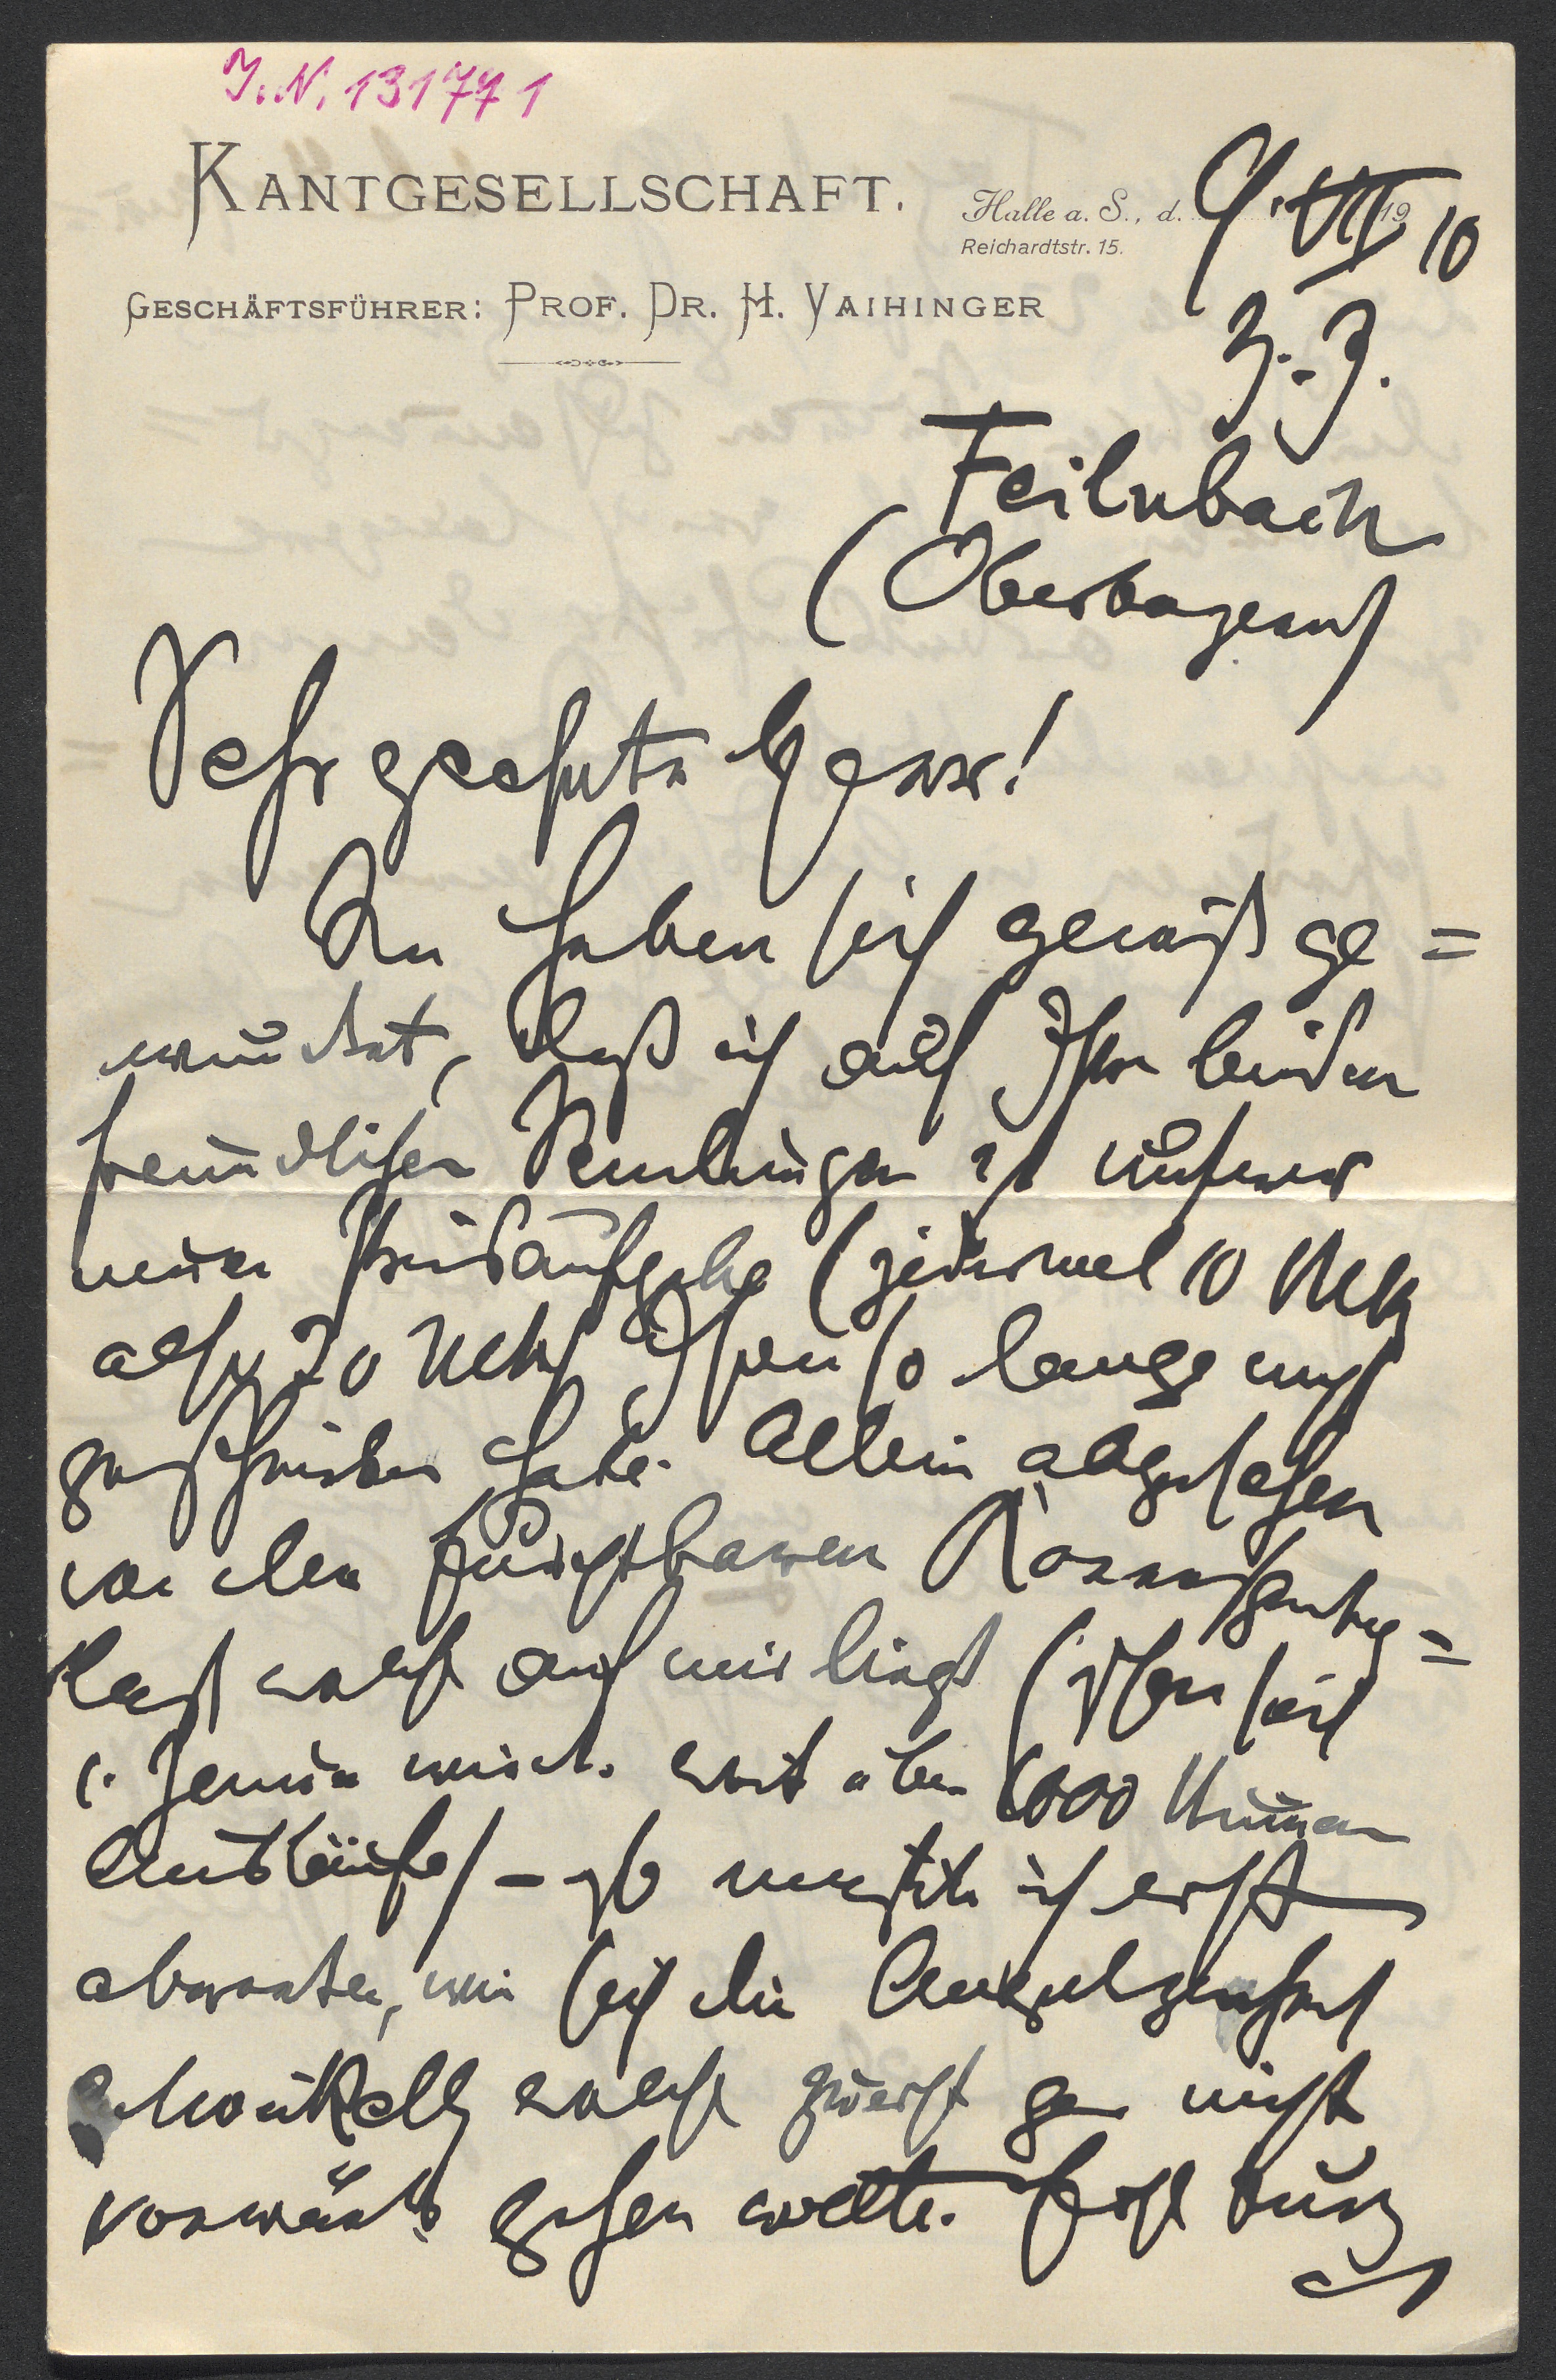 J.N. 131771
KANTGESELLSCHAFT.
Halle a. S., d. 9. VII 1910
Reichardtstr. 15.
GESCHÄFTSFÜHRER: PROF. DR. H. VAIHINGER
Z. Z.
Feilnbach
(Oberbayern)
Sehr geehrter Herr!
Sie haben sich gewiß ge=
wundert, daß ich auf Ihre beiden
freundlichen Sendungen unserer
neuen Preisaufgabe (jedesmal 10 Mk,
also 20 Mk) Ihnen so lange nicht
geschrieben habe. Allein abgesehen
von der furchtbaren Korrespondenz=
last welche auf mir liegt (schon seit
1. Januar mind. weit über 1000 Nummern
Ausläufe) – so mußte ich erst
abwarten, wie sich die Angelegenheit
entwickelt, welche zuerst gar nicht
vorwärts gehen wollte. Erst durch